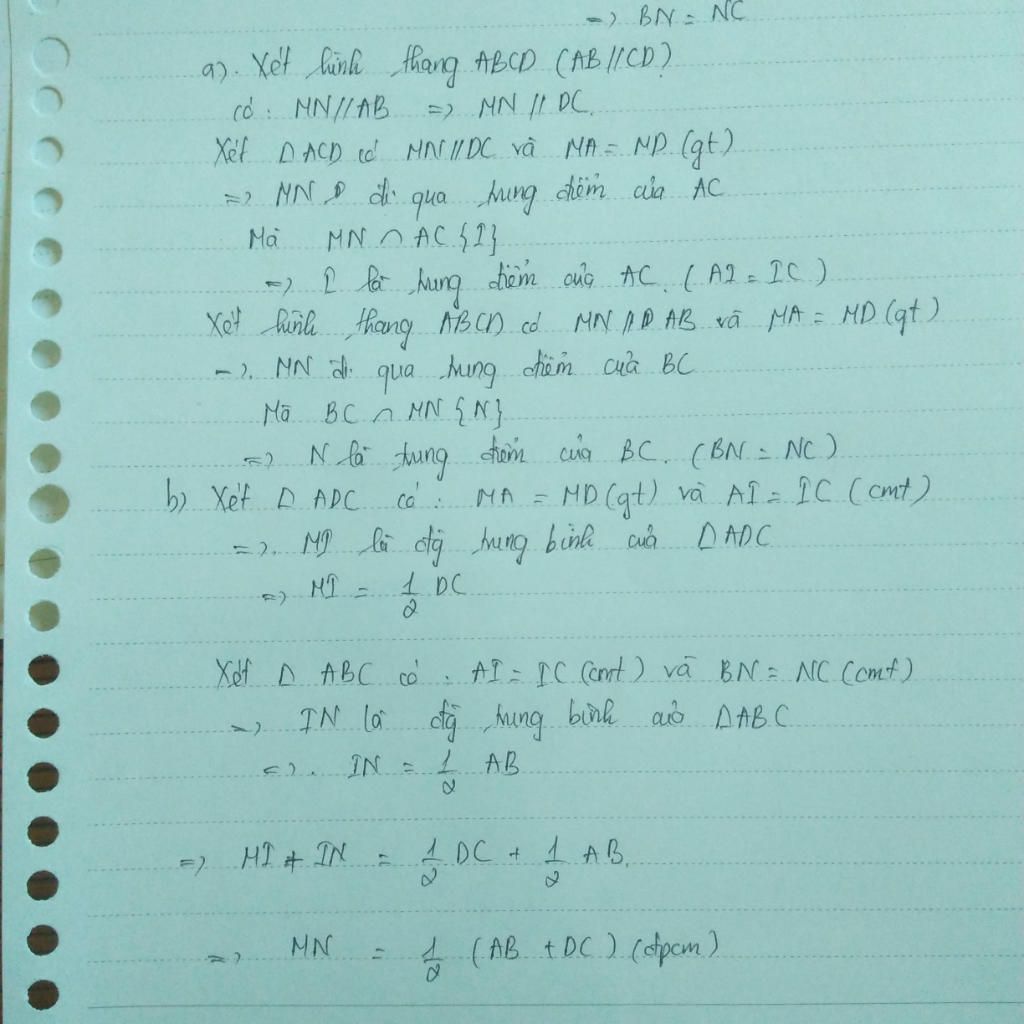 => BN = NC
a). Xét hình thang ABCD (AB//CD)
có : MN//AB => MN // DC.
Xét Δ ACD có MN//DC và MA = MD (gt)
=> MN đi qua trung điểm của AC
Mà MN ∩ AC {I}
=> I là trung điểm của AC. (AI = IC)
Xét hình thang ABCD có MN // AB và MA = MD (gt)
=>. MN đi qua trung điểm của BC
Mà BC ∩ MN {N}
=> N là trung điểm của BC. (BN = NC)
b) Xét Δ ADC có : MA = MD (gt) và AI = IC (cmt)
=>. MI là đg trung bình của Δ ADC
=> MI = 1/2 DC
Xét Δ ABC có : AI = IC (cmt) và BN = NC (cmt)
=> IN là đg trung bình của ΔABC
=>. IN = 1/2 AB
=> MI + IN = 1/2 DC + 1/2 AB.
=> MN = 1/2 (AB + DC) (đpcm)